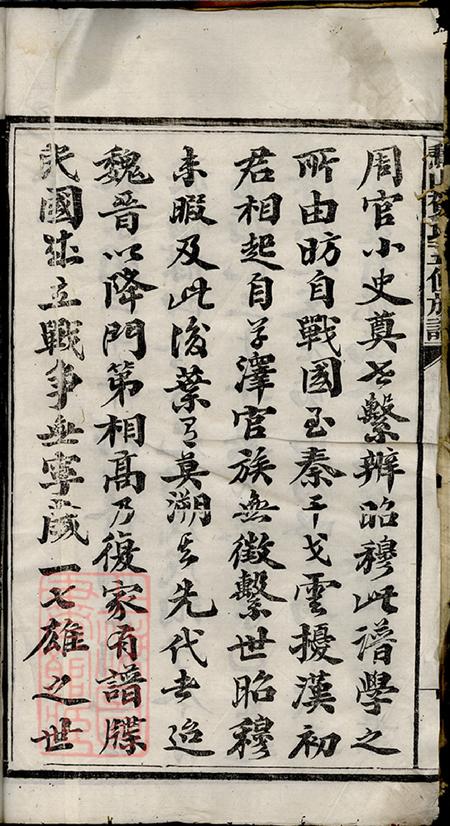 周官小史奠世繫辨昭穆此譜學之
所由昉自戰國至秦干戈雲擾漢初
君相起自草澤官族無徵繫世昭穆
未暇及此後葉有莫溯其先代者迨
魏晉以降門第相高乃復家有譜牒
民國建立戰爭無寧歲一七雄之世
五修族譜